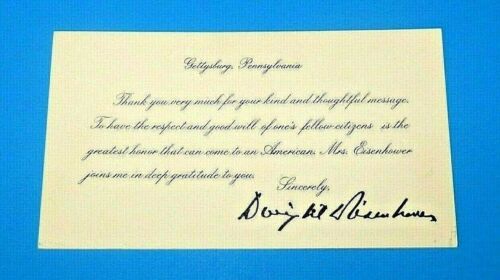 Gettysburg, Pennsylvania
Thank you very much for your kind and thoughtful message.
To have the respect and good will of one's fellow citizens is the
greatest honor that can come to an American. Mrs. Eisenhower
joins me in deep gratitude to you.
Sincerely,
Dwight D Eisenhower